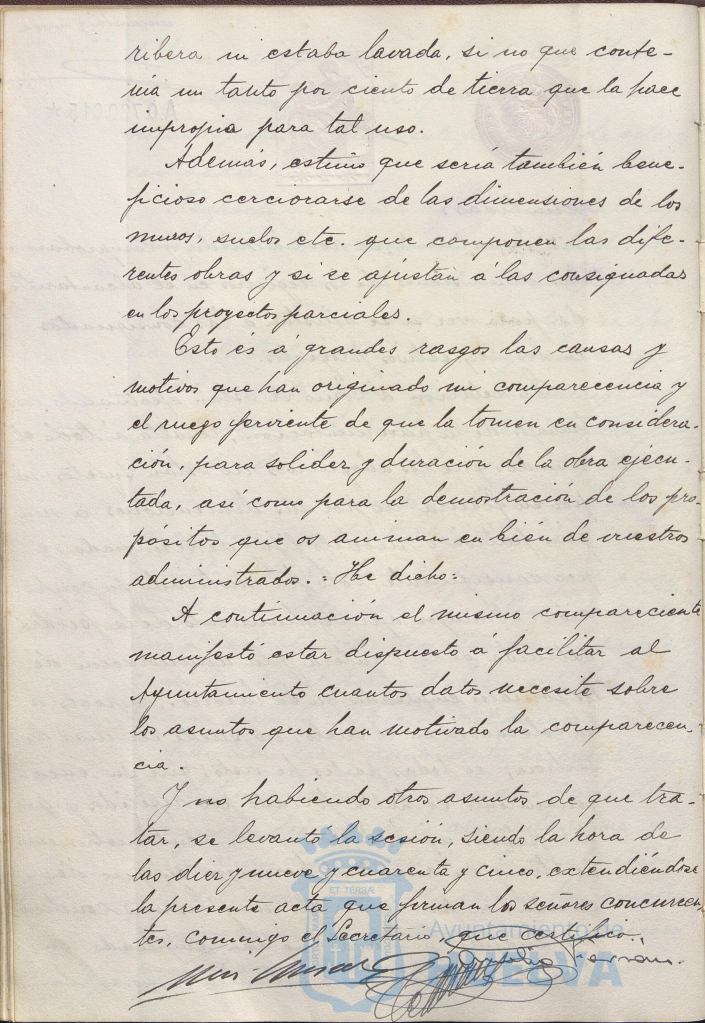 ribera ni estaba lavada, si no que conte-
nía un tanto por ciento de tierra que la hace
impropia para tal uso.
Además, estimo que sería también bene-
ficioso cerciorarse de las dimensiones de los
muros, suelos etc. que componen las dife-
rentes obras y si se ajustan á las consignadas
en los proyectos parciales.
Esto és á grandes rasgos las causas y
motivos que han originado mi comparecencia y
el ruego ferviente de que la tomen en considera-
ción, para solidez y duración de la obra ejecu-
tada, así como para la demostración de los pro-
pósitos que os animan en bién de vuestros
administrados.=He dicho=
A continuación el mismo compareciente
manifestó estar dispuesto á facilitar al
Ayuntamiento cuantos datos necesite sobre
los asuntos que han motivado la comparecen-
cia.
Y no habiendo otros asuntos de que tra-
tar, se levantó la sesión, siendo la hora de
las diez y nueve y cuarenta y cinco, extendiéndose
la presente acta que firman los señores concurren-
tes, conmigo el Secretario, que certifico.
ET TERRÆ
Ayuntamiento de
HUELVA